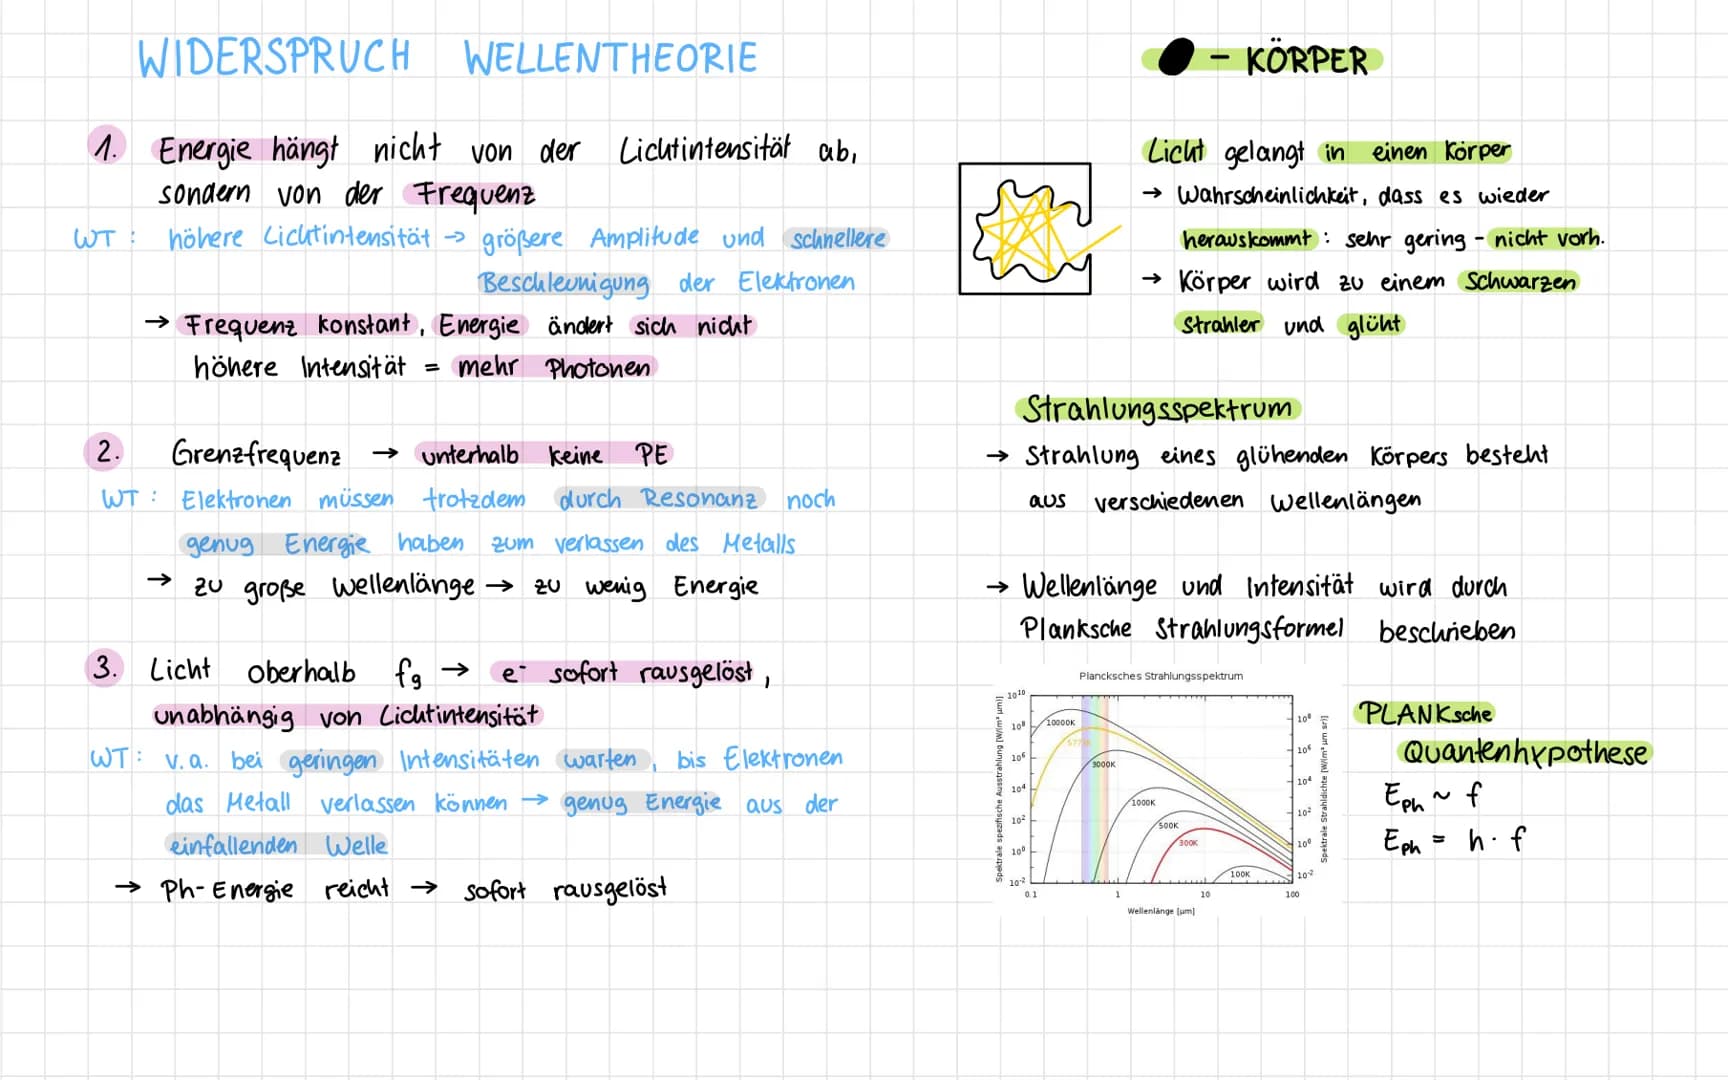 WIDERSPRUCH WELLENTHEORIE
1. Energie hängt nicht von der Lichtintensität ab,
sondern von der Frequenz
WT: höhere Lichtintensität → größere Amplitude und schnellere
Beschleunigung der Elektronen
→ Frequenz konstant, Energie ändert sich nicht
höhere Intensität = mehr Photonen
2. Grenzfrequenz → unterhalb keine PE
WT: Elektronen müssen trotzdem durch Resonanz noch
genug Energie haben zum verlassen des Metalls
→ zu große Wellenlänge → zu wenig Energie
3. Licht oberhalb fg → e⁻ sofort rausgelöst,
unabhängig von Lichtintensität
WT: v.a. bei geringen Intensitäten warten, bis Elektronen
das Metall verlassen können → genug Energie aus der
einfallenden Welle
→ Ph-Energie reicht → sofort rausgelöst
- KÖRPER
Licht gelangt in einen Körper
→ Wahrscheinlichkeit, dass es wieder
herauskommt: sehr gering - nicht vorh.
→ Körper wird zu einem Schwarzen
Strahler und glüht
Strahlungsspektrum
→ Strahlung eines glühenden Körpers besteht
aus verschiedenen Wellenlängen
→ Wellenlänge und Intensität wird durch
Planksche Strahlungsformel beschrieben
Plancksches Strahlungsspektrum
Spektrale spezifische Ausstrahlung [W/(m² µm)]
10¹⁰
10⁸
10⁶
10⁴
10²
10⁰
10⁻²
10000K
3000K
1000K
500K
300K
100K
10⁸
10⁶
10⁴
10²
10⁰
10⁻²
Spektrale Strahldichte [W/(m² µm sr)]
0.1 1 10 100
Wellenlänge [µm]
PLANKsche
Quantenhypothese
EPh ~ f
EPh = h · f